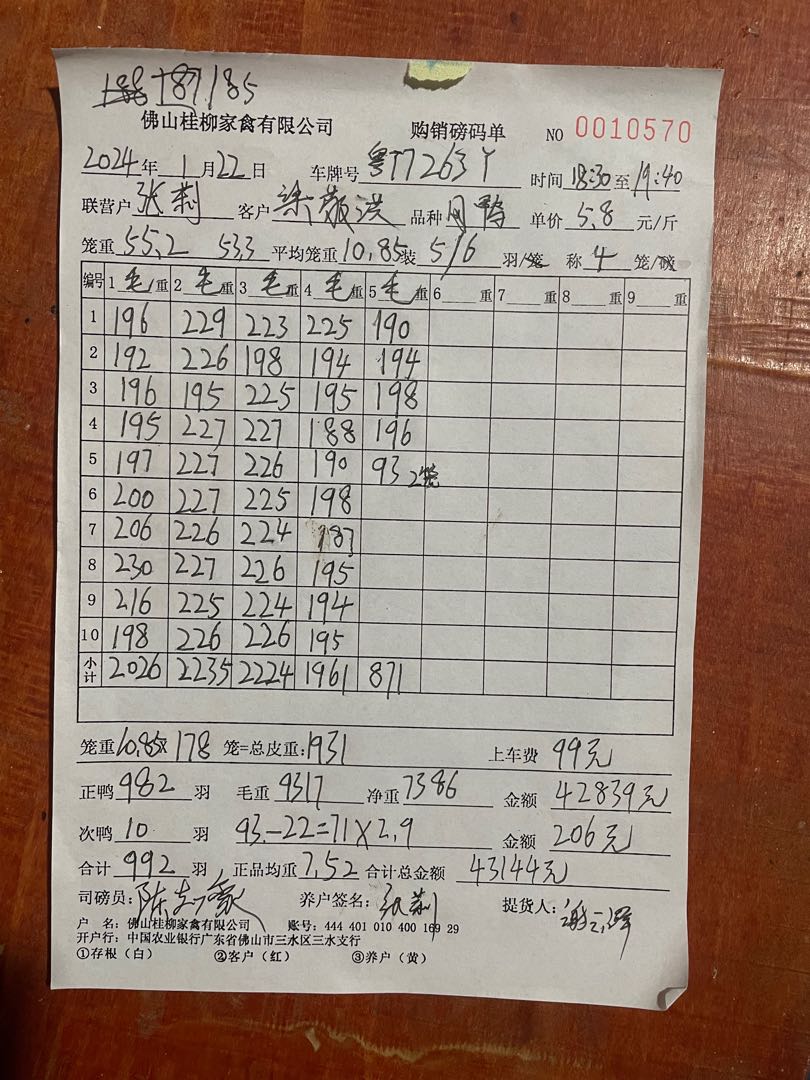 187.185
佛山桂柳家禽有限公司 购销磅码单 NO 0010570
2024年1月22日 车牌号 粤T7263Y 时间 18:30至19:40
联营户 张莉 客户 梁敬洪 品种 月鸭 单价 5.8 元/斤
笼重 55.2 53.3 平均笼重 10.85 装 5/6 羽/笼 称 4 笼/磅
编号 1毛重 2毛重 3毛重 4毛重 5毛重 6重 7重 8重 9重
1 196 229 223 225 190
2 192 226 198 194 194
3 196 195 225 195 198
4 195 227 227 188 196
5 197 227 226 190 93 2笼
6 200 227 225 198
7 206 226 224 187
8 230 227 226 195
9 216 225 224 194
10 198 226 226 195
小计 2026 2235 2224 1961 871
笼重10.85x178笼=总皮重:1931 上车费 99元
正鸭982羽 毛重9317 净重7386 金额42839元
次鸭10羽 93-22=71x2.9 金额206元
合计992羽 正品均重7.52 合计总金额43144元
司磅员: 养户签名:张莉 提货人:
户 名:佛山桂柳家禽有限公司 账号:444 401 010 400 169 29
开户行:中国农业银行广东省佛山市三水区三水支行
①存根(白) ②客户(红) ③养户(黄)